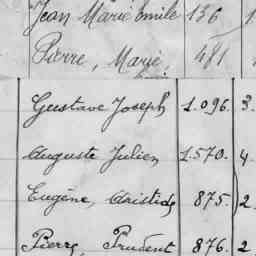 Jean Marie Emile 136 1
Pierre, Marie, 481
Gustave Joseph 1.096. 3.
Auguste Julien 1.570. 4.
Eugène, Aristide 875. 2
Pierre, Prudent 876. 2